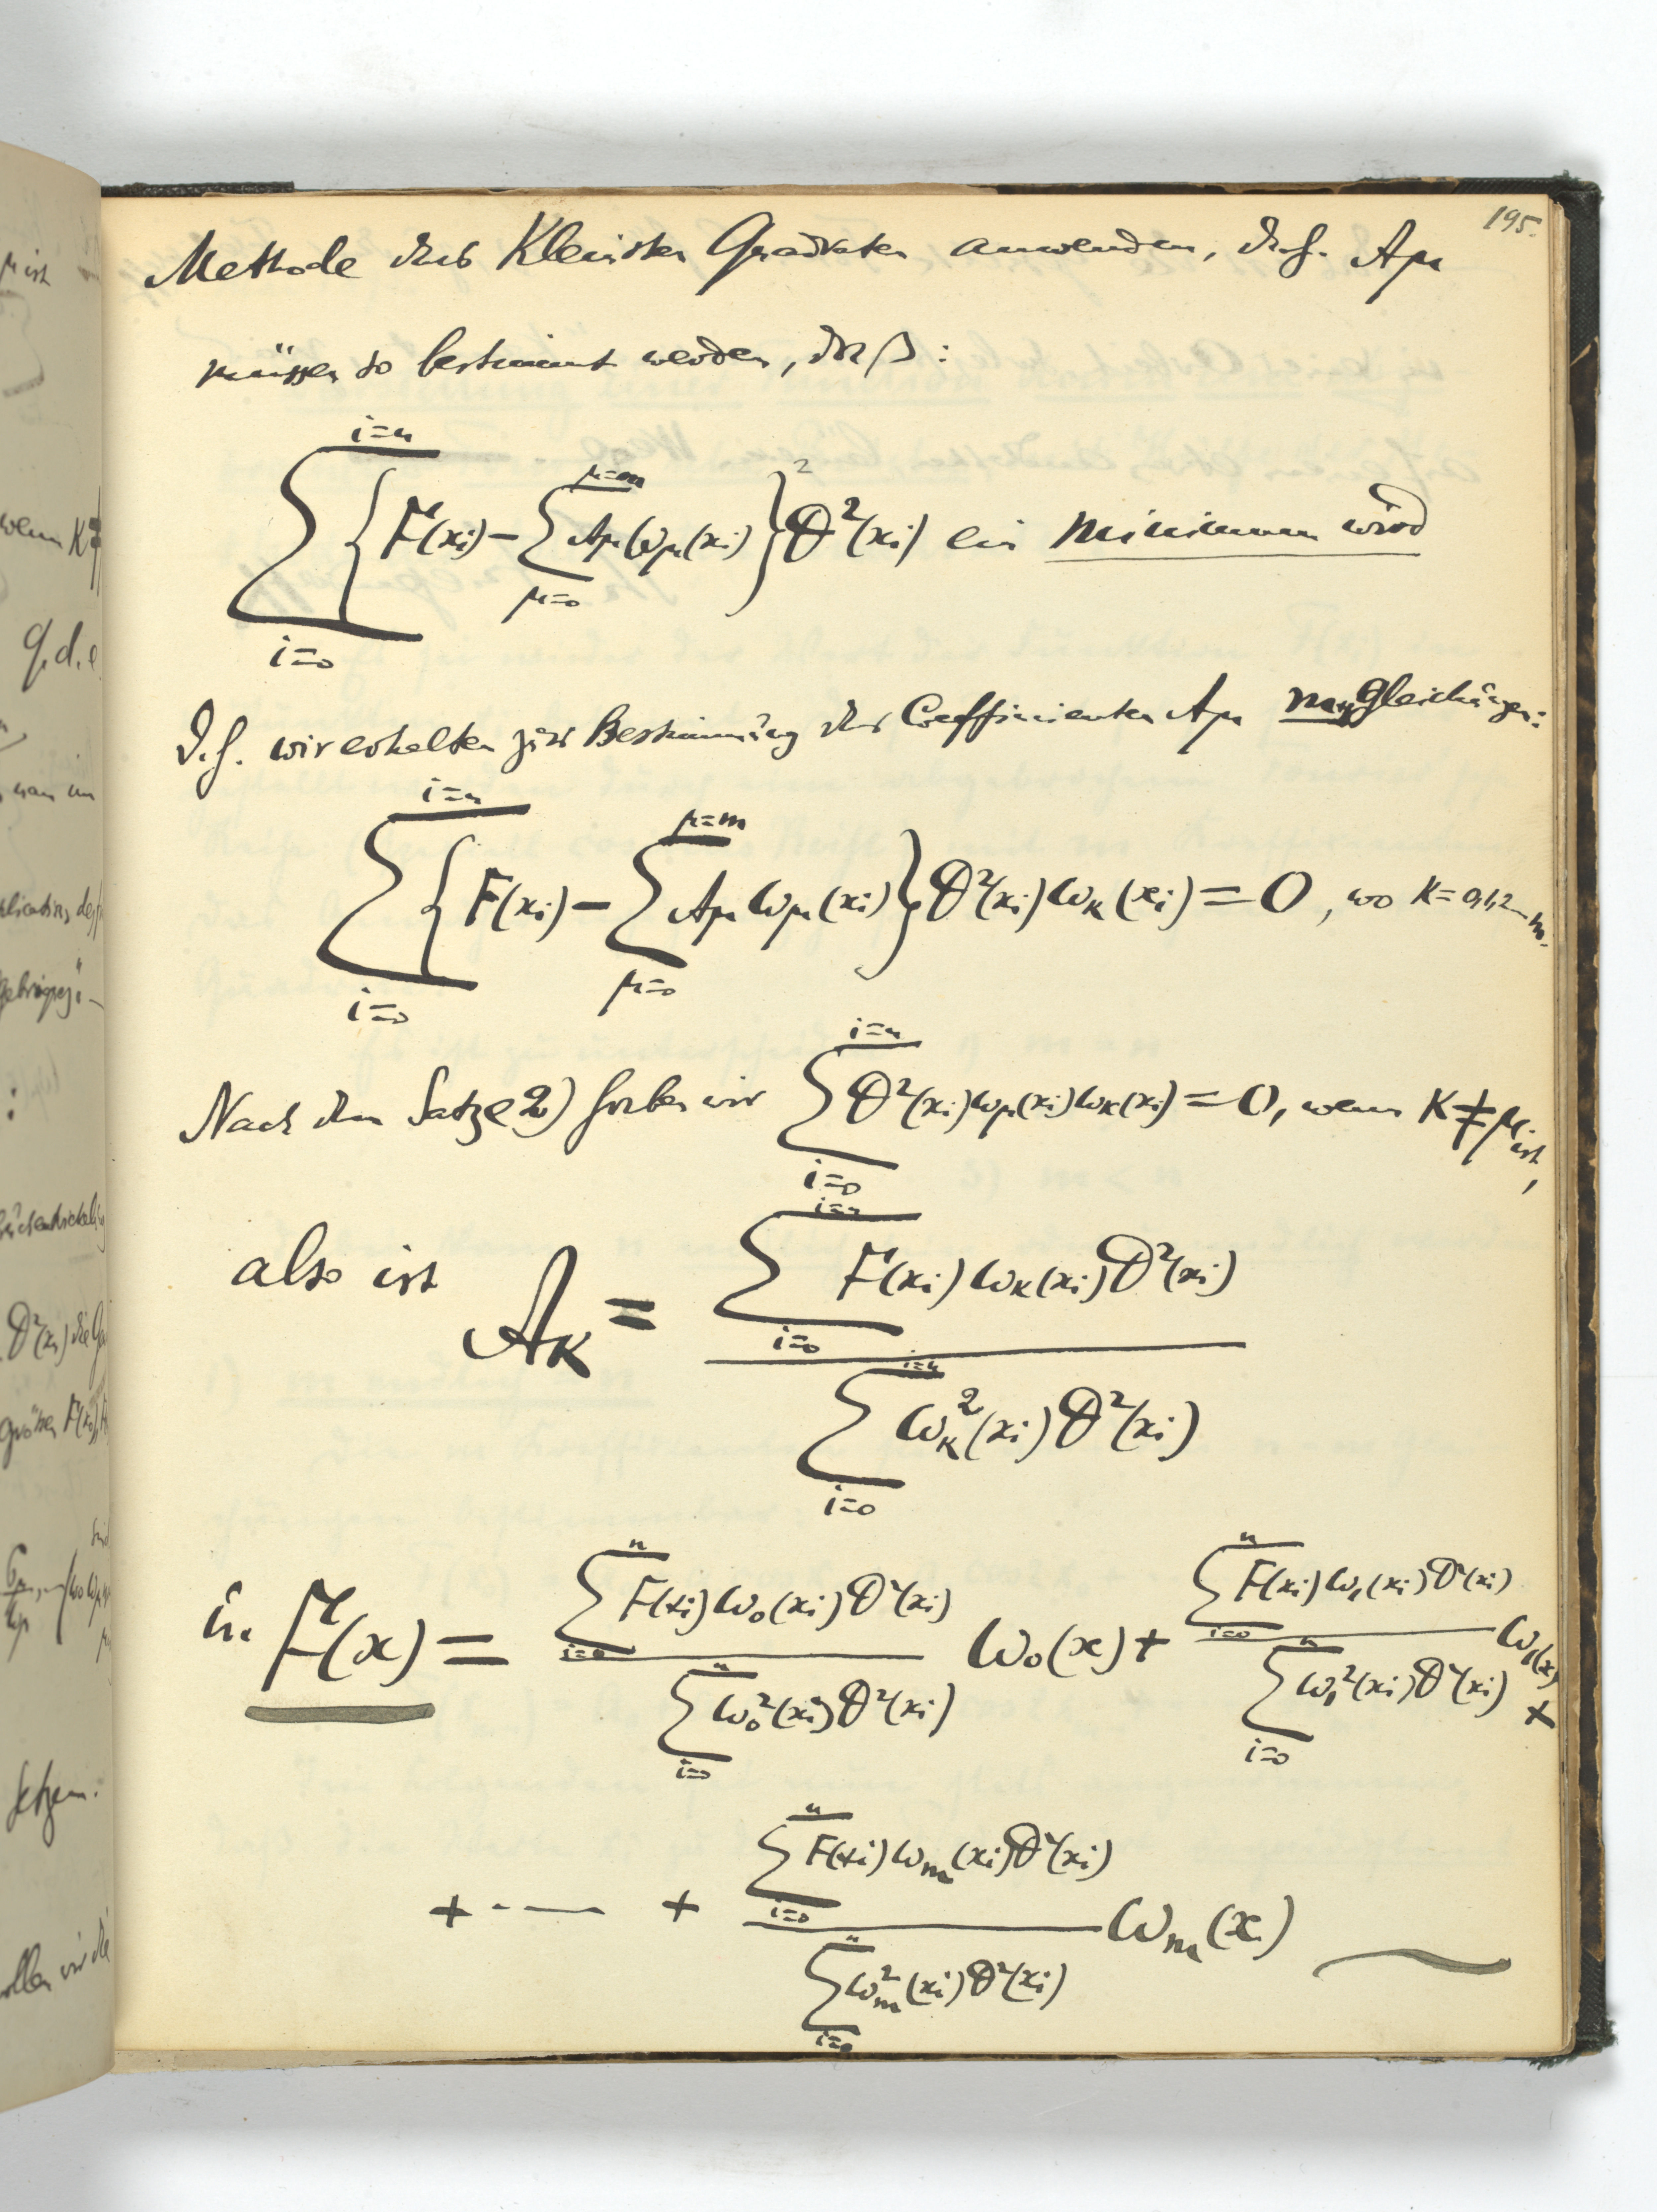 195.
Methode der Kleinsten Quadraten anwenden, d.h. Aμ
müssen so bestimmt werden, daß:
∑_{i=0}^{i=n} { F(xi) − ∑_{μ=0}^{μ=m} Aμ ωμ(xi) }² θ²(xi) ein minimum wird
D.h. wir erhalten zur Bestimmung der Coefficienten Aμ m+1 Gleichungen:
∑_{i=0}^{i=n} { F(xi) − ∑_{μ=0}^{μ=m} Aμ ωμ(xi) } θ²(xi) ωκ(xi) = 0, wo K = 0,1,2…m.
Nach dem Satze 2) haben wir ∑_{i=0}^{i=n} θ²(xi) ωμ(xi) ωκ(xi) = 0, wenn K ≠ μ ist,
also ist Aκ = ∑_{i=0}^{i=n} F(xi) ωκ(xi) θ²(xi) / ∑_{i=0}^{i=n} ωκ²(xi) θ²(xi)
F(x) = ∑_{i=0}^{n} F(xi) ω₀(xi) θ²(xi) / ∑_{i=0}^{n} ω₀²(xi) θ²(xi) ω₀(x) + ∑_{i=0}^{n} F(xi) ω₁(xi) θ²(xi) / ∑_{i=0}^{n} ω₁²(xi) θ²(xi) ω₁(x) +
+ ·–— + ∑_{i=0}^{n} F(xi) ωm(xi) θ²(xi) / ∑_{i=0}^{n} ωm²(xi) θ²(xi) ωm(x)
μ ist
wenn K ≠
q.d.e.
setzen.
wollen wir die